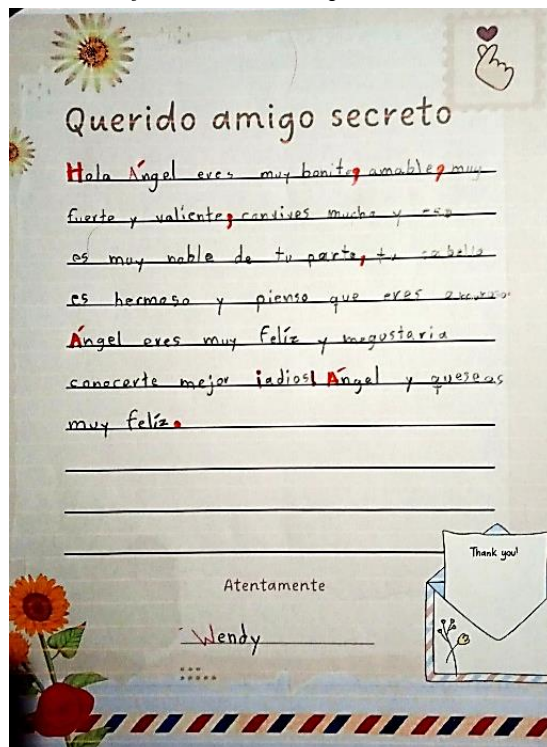 Querido amigo secreto
Hola Ángel eres muy bonito, amable, muy
fuerte y valiente, convives mucho y eso
es muy noble de tu parte, tu cabello
es hermoso y pienso que eres
Ángel eres muy felíz y megustaria
conocerte mejor ¡adios! Ángel y queseas
muy felíz.
Thank you!
Atentamente
Wendy